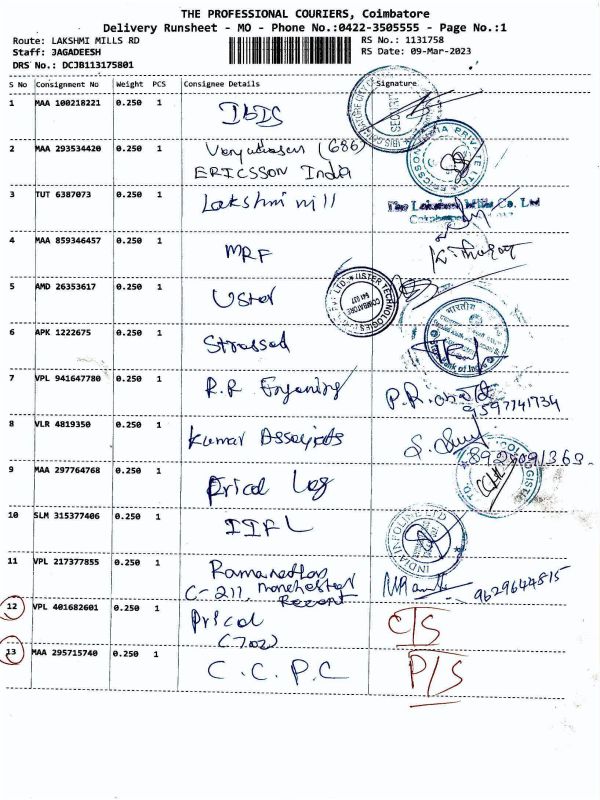 THE PROFESSIONAL COURIERS, Coimbatore
Delivery Runsheet - MO - Phone No.:0422-3505555 - Page No.:1
Route: LAKSHMI MILLS RD RS No.: 1131758
Staff: JAGADEESH RS Date: 09-Mar-2023
DRS No.: DCJB113175801
S No Consignment No Weight PCS Consignee Details Signature
1 MAA 100218221 0.250 1 IBIS
2 MAA 293534420 0.250 1 (686)
ERICSSON India
3 TUT 6387073 0.250 1 Lakshmi mill The Lakshmi Mills Co. Ltd
4 MAA 859346457 0.250 1 MRF
5 AMD 26353617 0.250 1 Uster USTER TECHNOLOGIES
COIMBATORE
641 037
6 APK 1222675 0.250 1
7 VPL 941647780 0.250 1 R.R P.R.
9597741734
8 VLR 4819350 0.250 1 Kumar Associats
8925091363.
9 MAA 297764768 0.250 1 Pricol Log
10 SLM 315377406 0.250 1 IIFL
11 VPL 217377855 0.250 1
C-211, Manchester 9629644815
12 VPL 401682601 0.250 1 Pricol C/S
13 MAA 295715740 0.250 1 C.C.P.C P/S